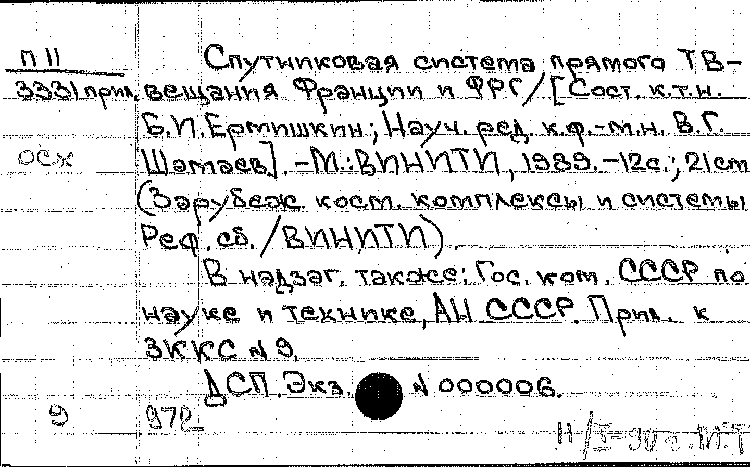 П 11 Спутниковая система прямого ТВ-
3331 прил. вещания Франции и ФРГ/[Сост. к.т.н.
Б.П.Ермишкин; Науч. ред. к.ф.-м.н. В.Г.
осх Шатаев]. -М.: ВИНИТИ, 1989. -12с.; 21см
(Зарубеж. косм. комплексы и системы
Реф. сб. /ВИНИТИ).
В надзаг. также: Гос. ком. СССР по
науке и технике, АН СССР. Прил. к
ЗККС N 9.
ДСП. Экз. N 000006.
9 97р